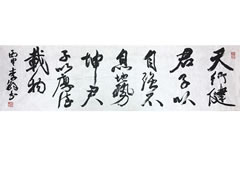 天行健
君子以
自強不
息地勢
坤君
子以厚德
載物
丙申